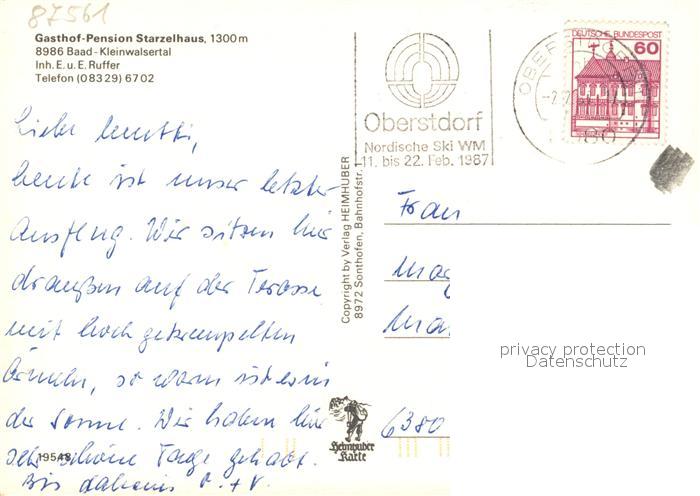 87561
Gasthof-Pension Starzelhaus, 1300 m
8986 Baad-Kleinwalsertal
Inh. E. u. E. Ruffer
Telefon (08329) 6702
Liebe Mutti,
heute ist unser letzter
Ausflug. Wir sitzen hier
draußen auf der Terasse
mit hoch gekrempelten
Ärmeln, so warm ist es in
der Sonne. Wir haben hier
sehr schöne Tage gehabt.
Bis daheim
19548
Oberstdorf
Nordische Ski WM
11. bis 22. Feb. 1987
OBERSTDORF
DEUTSCHE BUNDESPOST
60
Copyright by Verlag HEIMHUBER
8972 Sonthofen, Bahnhofstr.
Frau
6380
Heimhuber
Karte
privacy protection
Datenschutz